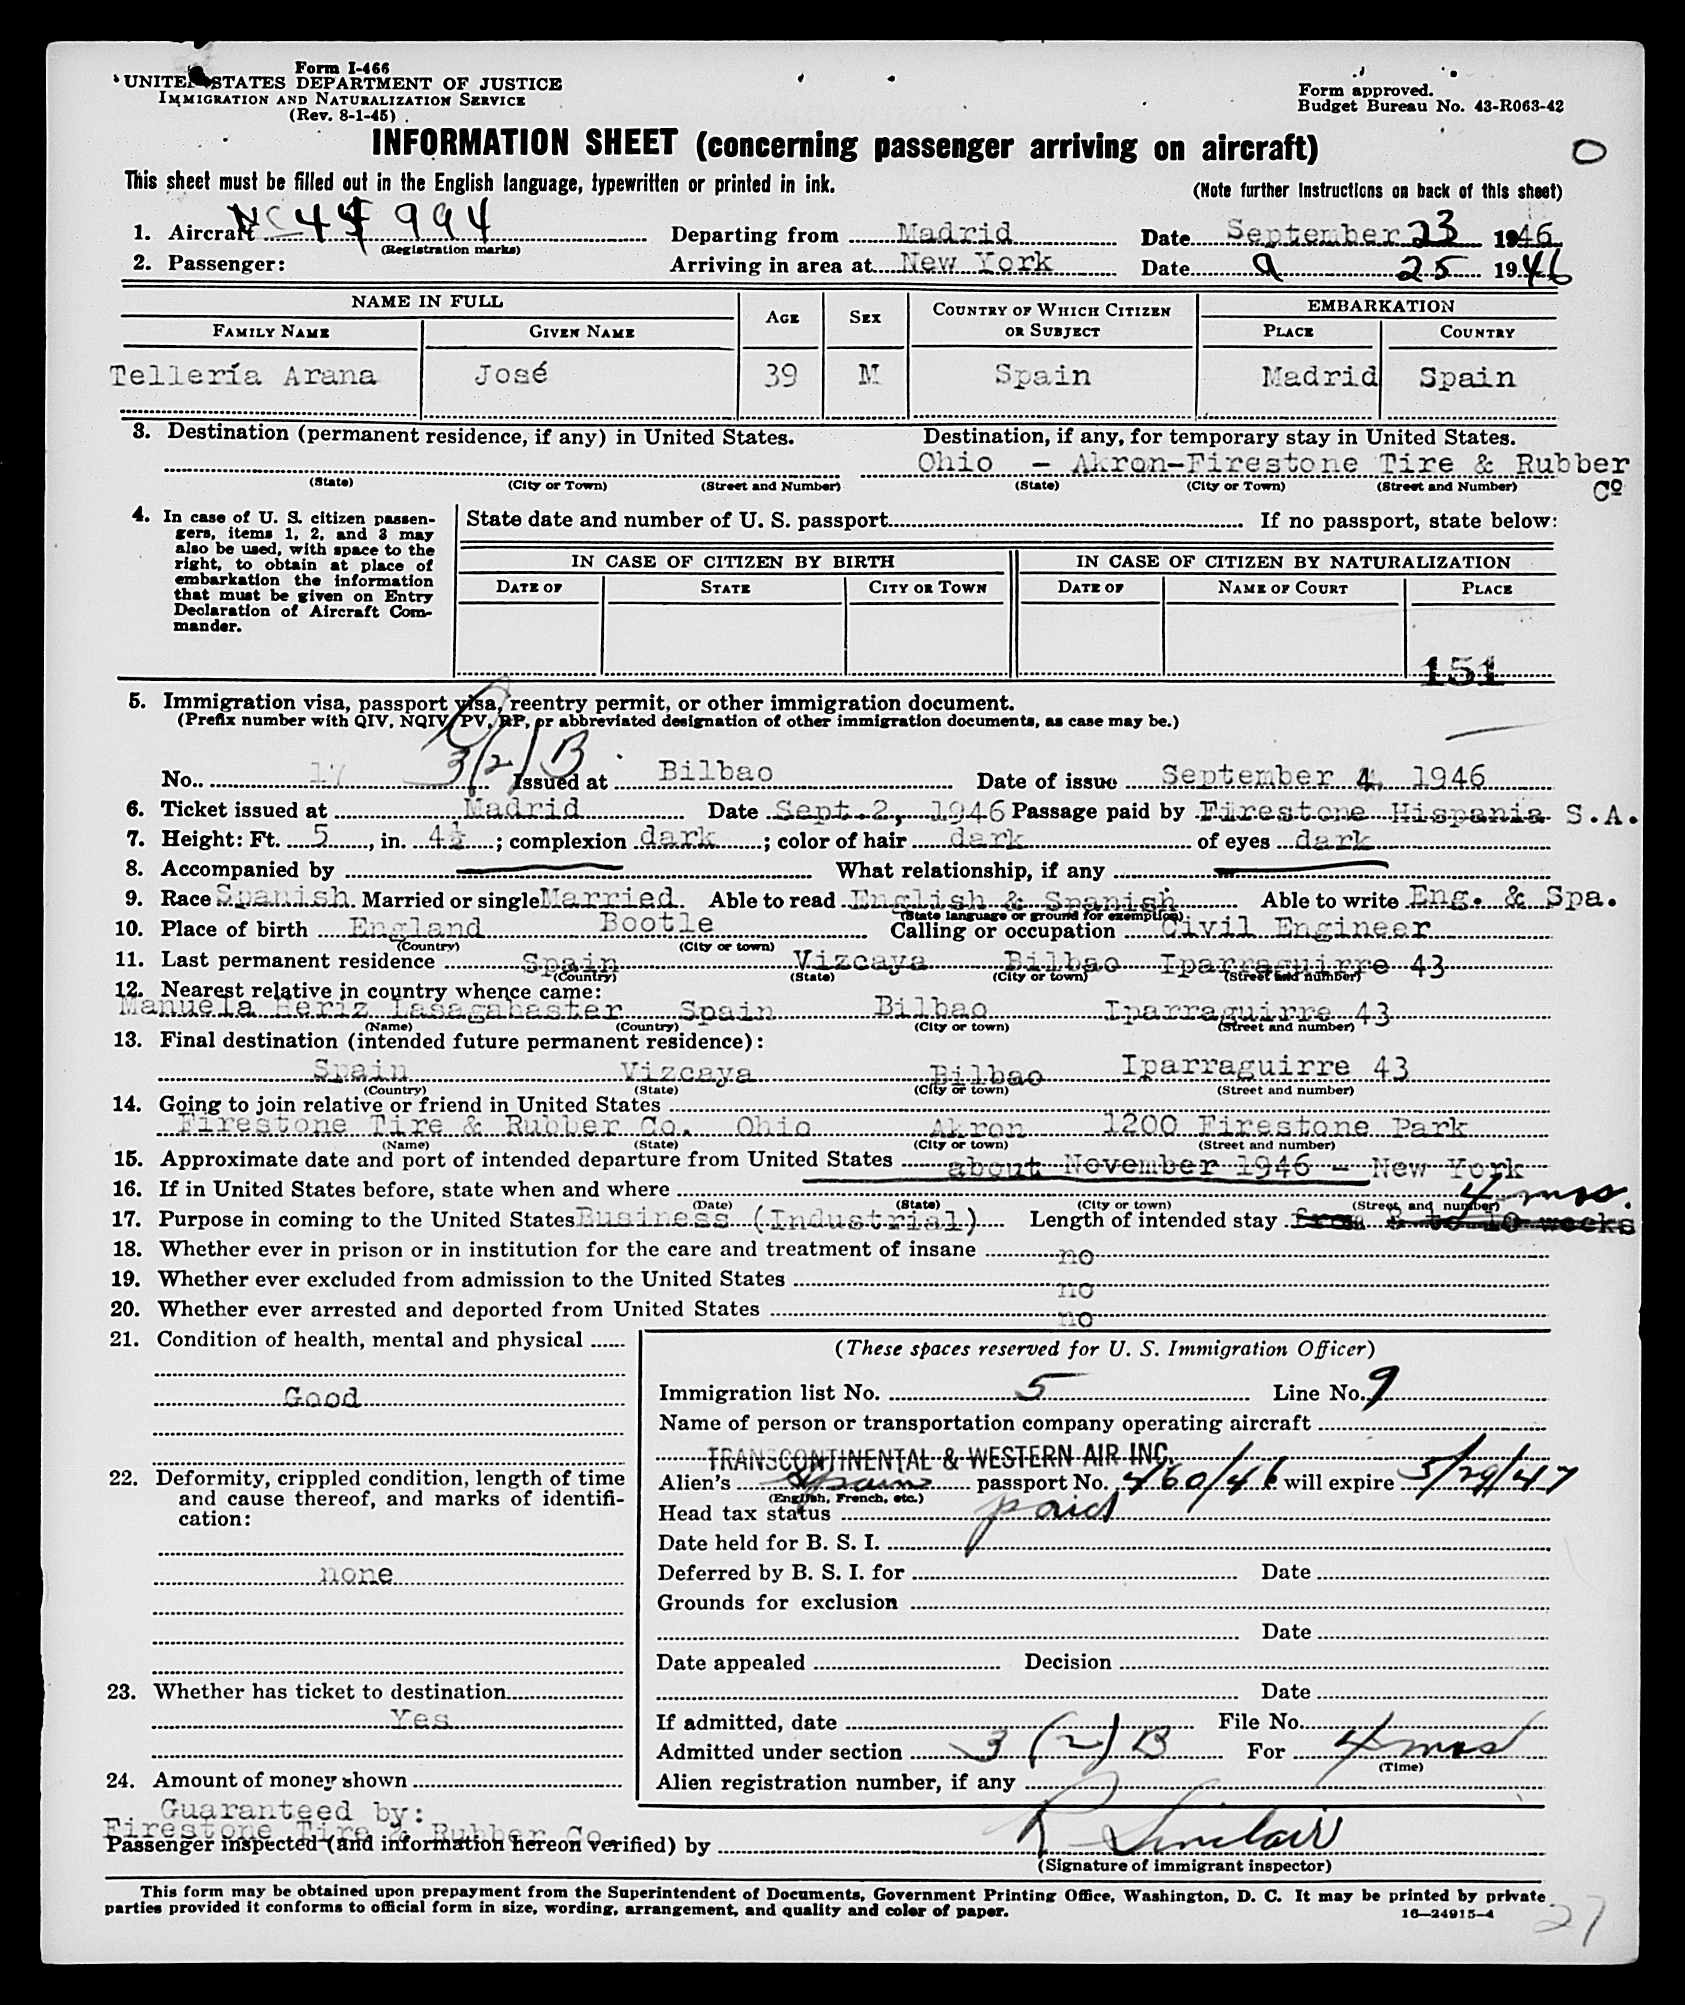 Form I-466
UNITED STATES DEPARTMENT OF JUSTICE
IMMIGRATION AND NATURALIZATION SERVICE
(Rev. 8-1-45)
Form approved.
Budget Bureau No. 43-R063-42
INFORMATION SHEET (concerning passenger arriving on aircraft)
This sheet must be filled out in the English language, typewritten or printed in ink.
(Note further instructions on back of this sheet)
1. Aircraft NC 44 994 Departing from Madrid Date September 23 1946
(Registration marks)
2. Passenger: Arriving in area at New York Date 9 25 1946
NAME IN FULL AGE SEX COUNTRY OF WHICH CITIZEN OR SUBJECT EMBARKATION
FAMILY NAME GIVEN NAME PLACE COUNTRY
Tellería Arana José 39 M Spain Madrid Spain
3. Destination (permanent residence, if any) in United States. Destination, if any, for temporary stay in United States.
Ohio - Akron-Firestone Tire & Rubber Cº
(State) (City or Town) (Street and Number) (State) (City or Town) (Street and Number)
4. In case of U. S. citizen passengers, items 1, 2, and 3 may also be used, with space to the right, to obtain at place of embarkation the information that must be given on Entry Declaration of Aircraft Commander.
State date and number of U. S. passport If no passport, state below:
IN CASE OF CITIZEN BY BIRTH IN CASE OF CITIZEN BY NATURALIZATION
DATE OF STATE CITY OR TOWN DATE OF NAME OF COURT PLACE
151
5. Immigration visa, passport visa, reentry permit, or other immigration document.
(Prefix number with QIV, NQIV, PV, RP, or abbreviated designation of other immigration documents, as case may be.)
3(2)B
No. 17 Issued at Bilbao Date of issue September 4, 1946
6. Ticket issued at Madrid Date Sept.2, 1946 Passage paid by Firestone Hispania S.A.
7. Height: Ft. 5, in. 4½; complexion dark; color of hair dark of eyes dark
8. Accompanied by What relationship, if any
9. Race Spanish. Married or single Married Able to read English & Spanish Able to write Eng. & Spa.
(State language or ground for exemption)
10. Place of birth England Bootle Calling or occupation Civil Engineer
(Country) (City or town)
11. Last permanent residence Spain Vizcaya Bilbao Iparraguirre 43
(Country) (State) (City or town) (Street and number)
12. Nearest relative in country whence came:
Manuela Heriz Lasagabaster Spain Bilbao Iparraguirre 43
(Name) (Country) (City or town) (Street and number)
13. Final destination (intended future permanent residence):
Spain Vizcaya Bilbao Iparraguirre 43
(Country) (State) (City or town) (Street and number)
14. Going to join relative or friend in United States
Firestone Tire & Rubber Co. Ohio Akron 1200 Firestone Park
(Name) (State) (City or town) (Street and number)
15. Approximate date and port of intended departure from United States about November 1946 - New York
16. If in United States before, state when and where
(Date) (State) (City or town) (Street and number)
4 mos.
17. Purpose in coming to the United States Business (Industrial) Length of intended stay from 8 to 10 weeks
18. Whether ever in prison or in institution for the care and treatment of insane no
19. Whether ever excluded from admission to the United States no
20. Whether ever arrested and deported from United States no
21. Condition of health, mental and physical
Good
22. Deformity, crippled condition, length of time and cause thereof, and marks of identification:
none
23. Whether has ticket to destination
Yes
24. Amount of money shown
Guaranteed by:
Firestone Tire & Rubber Co.
(These spaces reserved for U. S. Immigration Officer)
Immigration list No. 5 Line No. 9
Name of person or transportation company operating aircraft
TRANSCONTINENTAL & WESTERN AIR INC.
Alien's Spain passport No. 460/46 will expire 5/29/47
(English, French, etc.)
Head tax status paid
Date held for B. S. I.
Deferred by B. S. I. for Date
Grounds for exclusion
Date
Date appealed Decision
Date
If admitted, date File No.
Admitted under section 3(2)B For 4 mos
(Time)
Alien registration number, if any
Passenger inspected (and information hereon verified) by R Sinclair
(Signature of immigrant inspector)
This form may be obtained upon prepayment from the Superintendent of Documents, Government Printing Office, Washington, D. C. It may be printed by private
parties provided it conforms to official form in size, wording, arrangement, and quality and color of paper.
16—24915-4
27